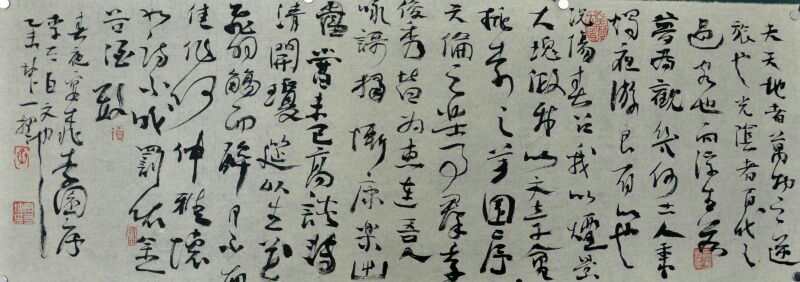 夫天地者萬物之逆
旅也光陰者百代之
過客也而浮生若
夢為觀幾何古人秉
燭夜游良有以也
况陽春召我以煙景
大塊假我以文章會
桃李之芳園序
天倫之樂事群季
俊秀皆為惠連吾人
詠謌獨慚康樂幽
賞未已高談轉
清開瓊筵以坐花
飛羽觴而醉月不有
佳作何伸雅懷
如詩不成罰依金
谷酒數
春夜宴桃李園序
李太白文
乙未